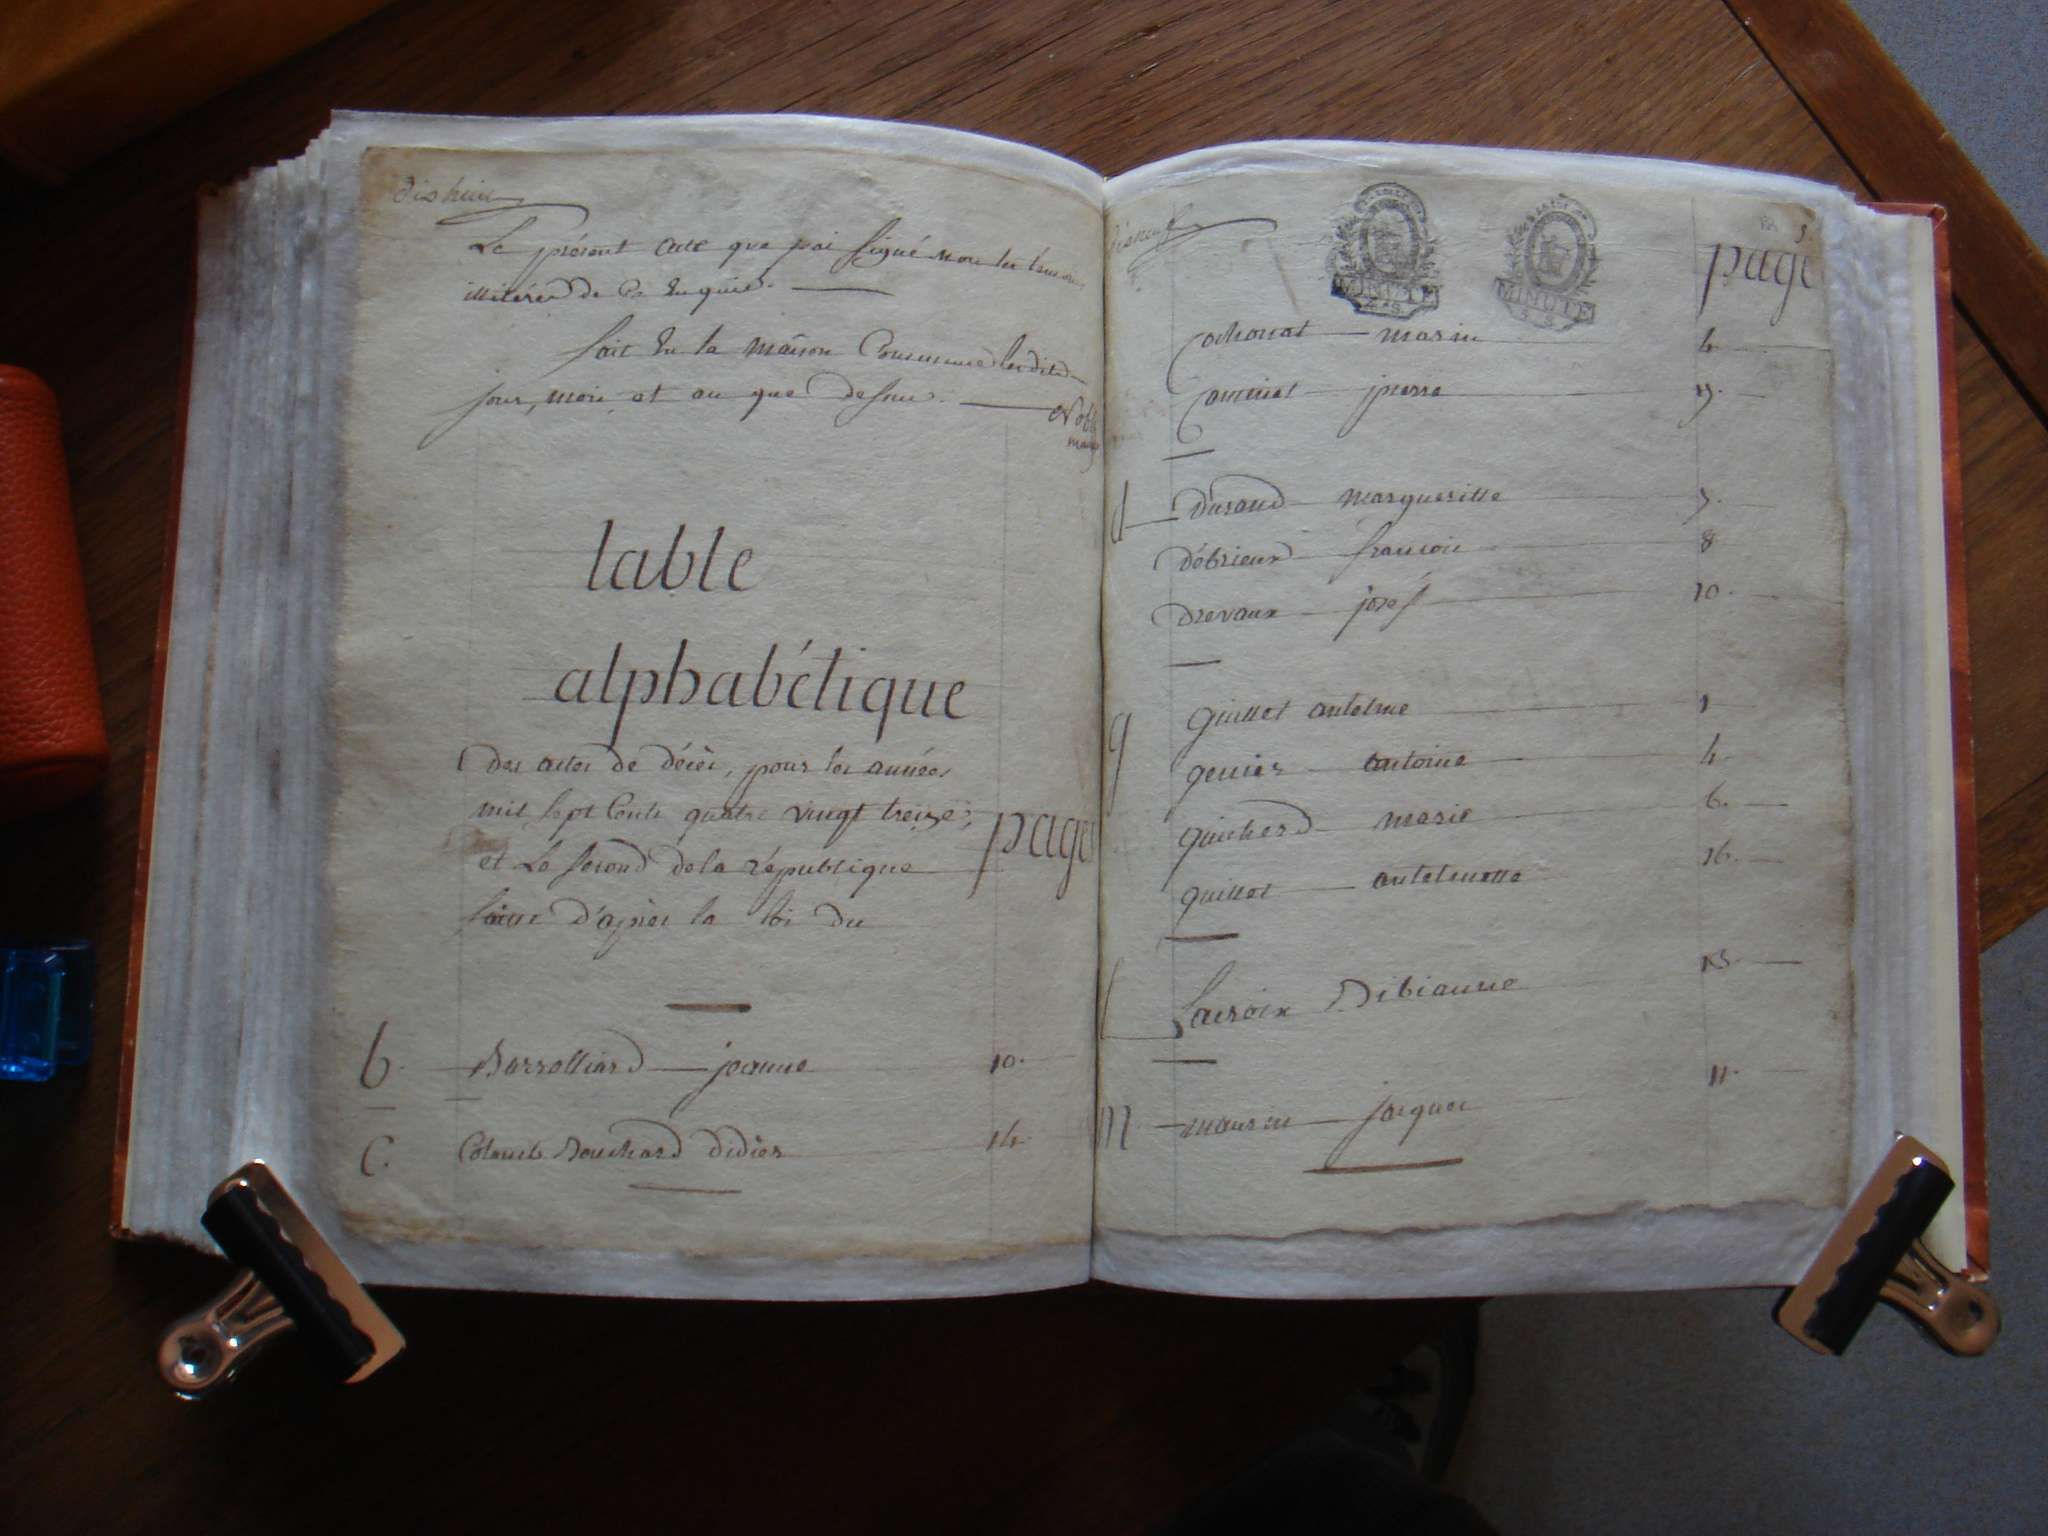 dishuit
Le présent acte que j'ai signé non les temoins
illitérés de ce enquis.
fait en la maison Commune les dits
jour, mois et an que dessus.
Noble
maire
table
alphabétique
des actes de décès, pour les années
mil sept cents quatre vingt treize,
et Le second de la république
faitte d'après la loi du
page
b. Barrolliard jeanne 10.
C. Colomb Bouchard didier 14.
disneuf
MINUTE
MINUTE
5.
page
cochonat marie 4
comniot pierre
d durand margueritte 7.
débrieux francois 8
drevaux josef 10.
g guillot antelme 1
genier antoine 4.
guicherd marie 6.
guillot antelmette 16.
l Lacroix Bibianne 13.
m maurin jacques 11.